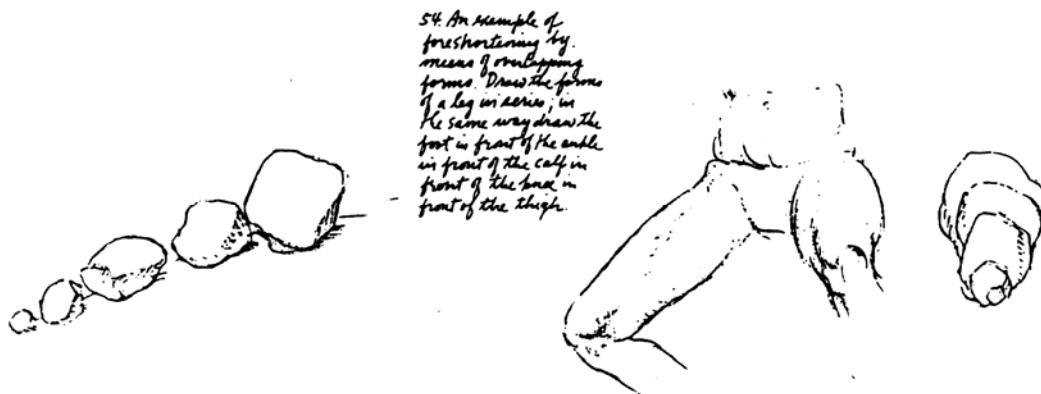 54. An example of
foreshortening by
means of overlapping
forms. Draw the forms
of a leg in series; in
the same way draw the
foot in front of the ankle
in front of the calf in
front of the knee in
front of the thigh.